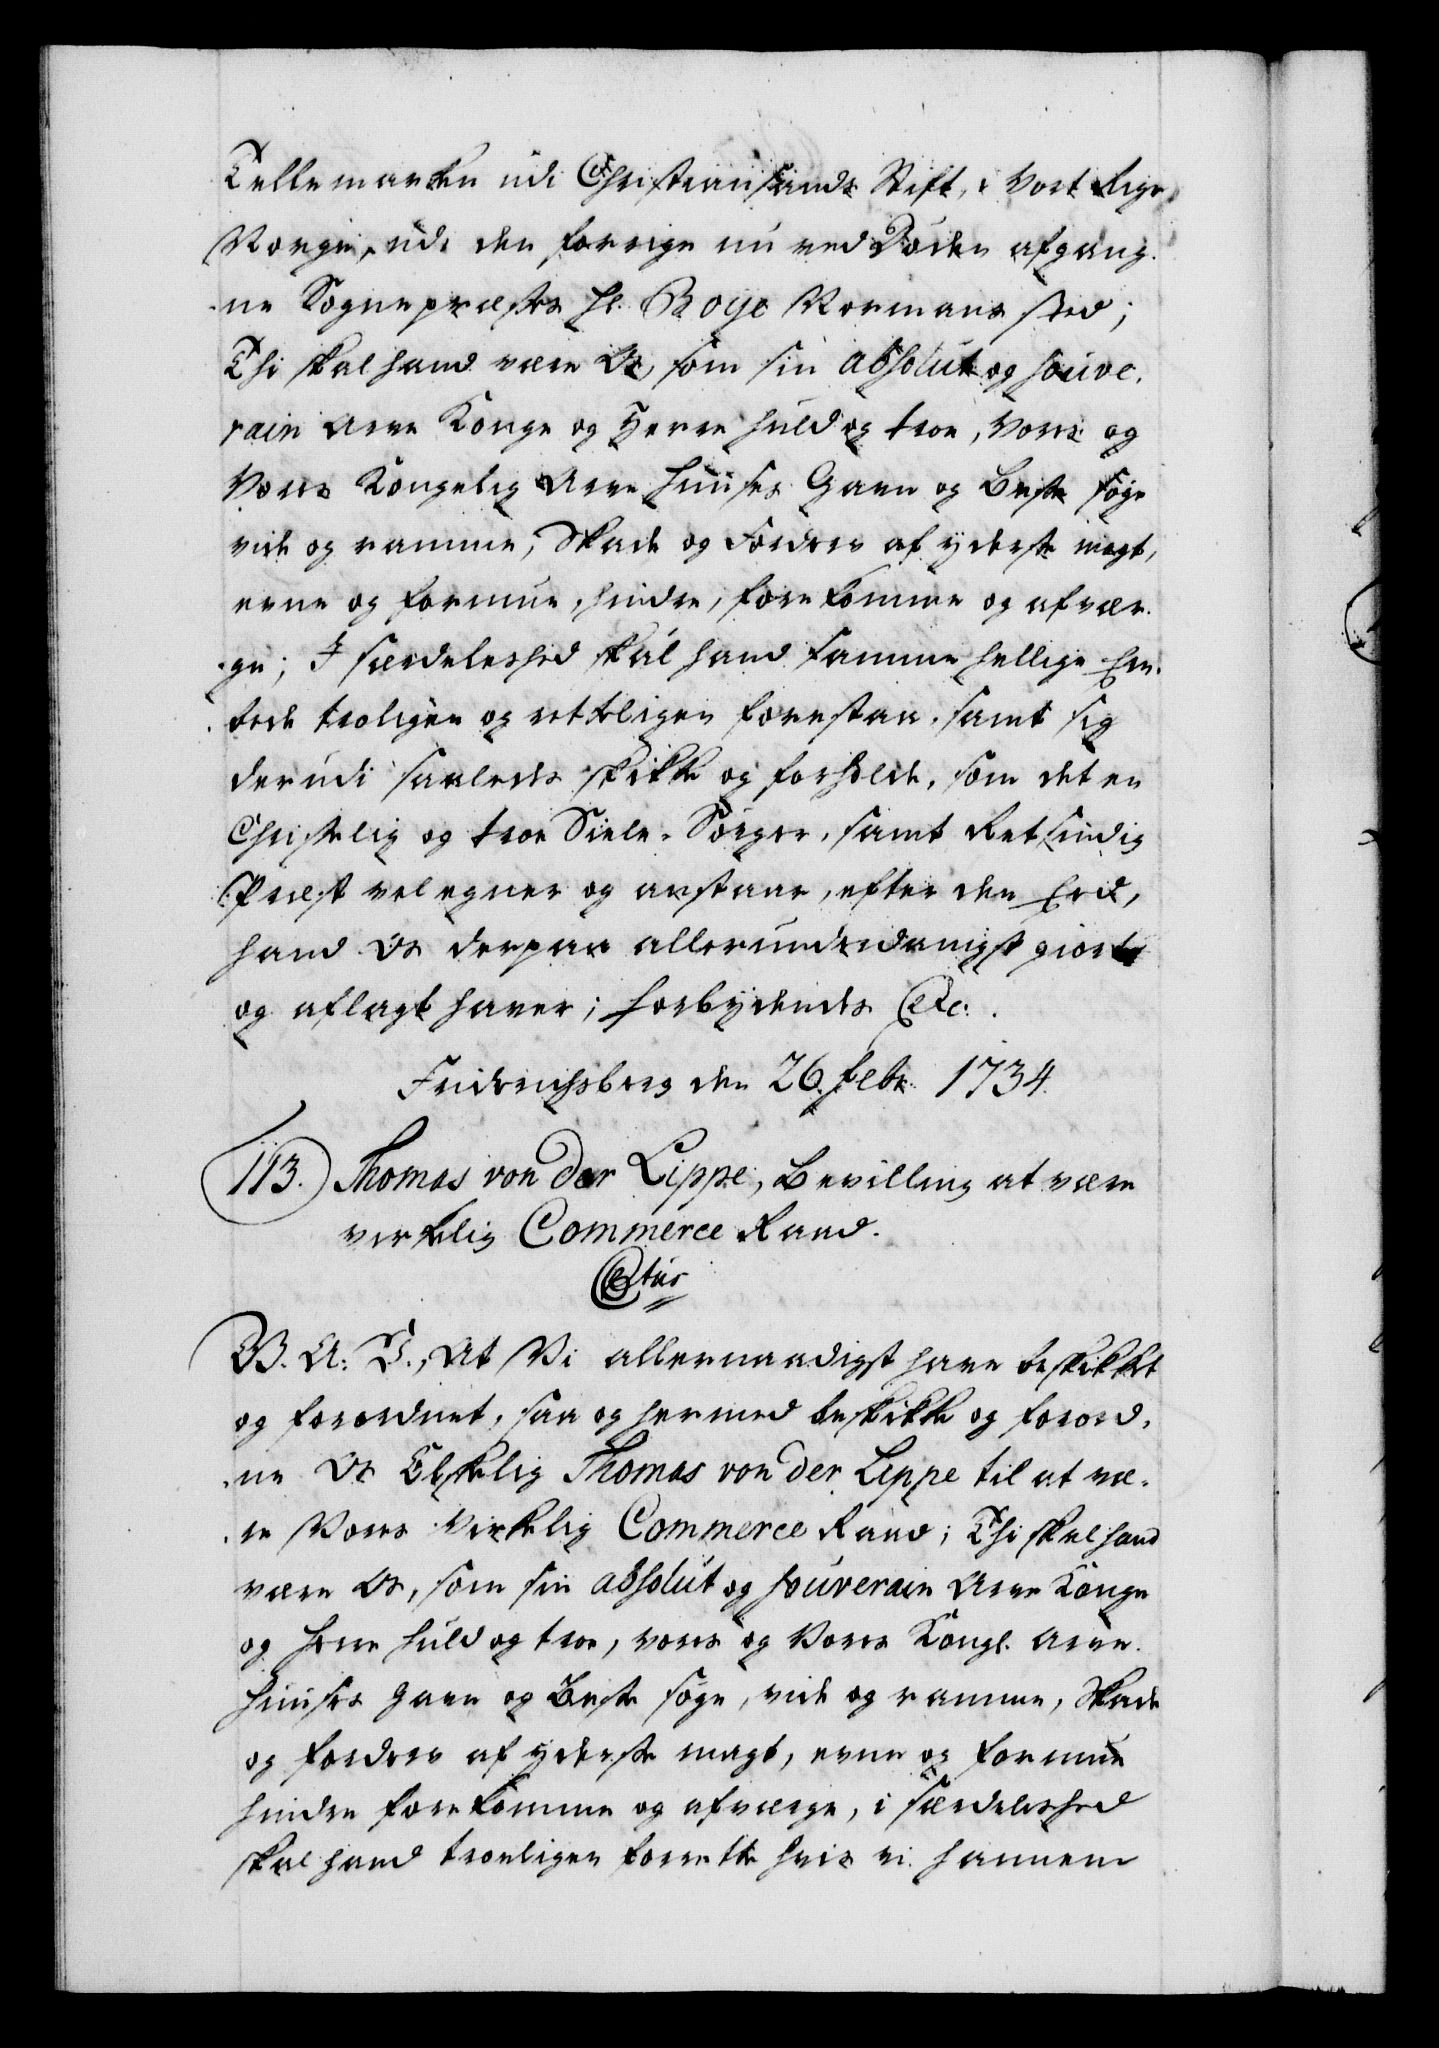 Tellemarken udi Christiansands Stift, i Vort Rige
Norge, udi den forrige nu ved Døden afgang-
ne Sognepræstes Hr. Boye Normans sted;
Thi skal hand være Os, som sin absolut og souve-
rain Arve Konge og Herre huld og troe, Vores og
Vores Kongelig Arve Huuses Gavn og Beste søge
vide og ramme, Skade og Fordærv af yderste magt,
evne og formue, hindre, forekomme og afvær-
ge; I særdeleshed skal hand samme hellige Em-
bede troligen og rettligen forestaa, samt sig
derudi saaledes skikke og forholde, som det en
Christelig og troe Siele-Sørger, samt Retsindig
Præst vel egner og anstaar, efter den Eed,
hand Os derpaa allerunderdanigst giort
og aflagt haver; Forbydendes Etc:
Fridrichsberg den 26. Febr. 1734.
113. Thomas von der Lippe, Bevilling at være
virkelig Commerce Raad.
Ctus
G. A: V., At Vi allernaadigst have beskikket
og forordnet, saa og hermed beskikke og forord-
ne Os Elskelig Thomas von der Lippe til at væ-
re Vores virkelig Commerce Raad; Thi skal hand
være Os, som sin absolut og souverain Arve Konge
og Herre huld og troe, vores og Vores Kongl. Arve
Huuses Gavn og Beste søge, vide og ramme, Skade
og fordærv af yderste magt, evne og formue
hindre forekomme og afværge, i særdeleshed
skal hand troeligen forrette hvis vi hannem